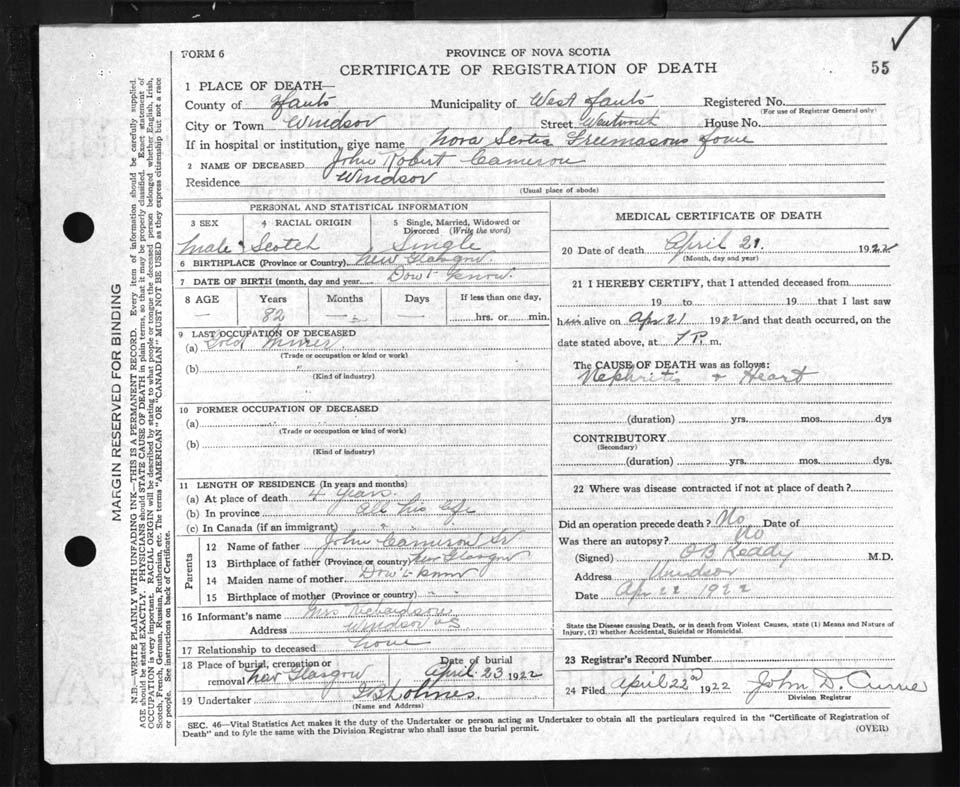 FORM 6
PROVINCE OF NOVA SCOTIA
CERTIFICATE OF REGISTRATION OF DEATH
55
1 PLACE OF DEATH—
County of Hants Municipality of West Hants Registered No.
(For use of Registrar General only)
City or Town Windsor Street Wentworth House No.
If in hospital or institution, give name Nova Scotia Freemasons Home
2 NAME OF DECEASED John Robert Cameron
Residence Windsor
(Usual place of abode)
PERSONAL AND STATISTICAL INFORMATION
3 SEX 4 RACIAL ORIGIN 5 Single, Married, Widowed or Divorced (Write the word)
Male Scotch Single
6 BIRTHPLACE (Province or Country) New Glasgow
7 DATE OF BIRTH (month, day and year) Don't know
8 AGE Years Months Days If less than one day,
— 82 — — hrs. or min.
9 LAST OCCUPATION OF DECEASED
(a) Gold Miner
(Trade or occupation or kind or work)
(b) "
(Kind of industry)
10 FORMER OCCUPATION OF DECEASED
(a)
(Trade or occupation or kind of work)
(b)
(Kind of industry)
11 LENGTH OF RESIDENCE (In years and months)
(a) At place of death 4 Years
(b) In province all his life
(c) In Canada (if an immigrant) " " "
Parents
12 Name of father John Cameron Sr
13 Birthplace of father (Province or country) New Glasgow
14 Maiden name of mother Don't know
15 Birthplace of mother (Province or country) " "
16 Informant's name Mrs Richardson
Address Windsor NS
17 Relationship to deceased none
18 Place of burial, cremation or removal New Glasgow Date of burial April 23 1922
19 Undertaker Holmes
(Name and Address)
MEDICAL CERTIFICATE OF DEATH
20 Date of death April 21. 1922
(Month, day and year)
21 I HEREBY CERTIFY, that I attended deceased from
19 to 19 that I last saw
him alive on Apr 21 1922 and that death occurred, on the
date stated above, at 7 P. m.
The CAUSE OF DEATH was as follows:
Nephritis + Heart
(duration) yrs. mos. dys
CONTRIBUTORY
(Secondary)
(duration) yrs. mos. dys.
22 Where was disease contracted if not at place of death?
Did an operation precede death? No Date of
Was there an autopsy? No
(Signed) O B Keddy M.D.
Address Windsor
Date Apr 22 1922
State the Disease causing Death, or in death from Violent Causes, state (1) Means and Nature of Injury, (2) whether Accidental, Suicidal or Homicidal.
23 Registrar's Record Number
24 Filed April 22nd 1922 John D. Currie
Division Registrar
SEC. 46—Vital Statistics Act makes it the duty of the Undertaker or person acting as Undertaker to obtain all the particulars required in the "Certificate of Registration of
Death" and to fyle the same with the Division Registrar who shall issue the burial permit. (OVER)
MARGIN RESERVED FOR BINDING
N.B.—WRITE PLAINLY WITH UNFADING INK—THIS IS A PERMANENT RECORD. Every item of information should be carefully supplied.
AGE should be stated EXACTLY. PHYSICIANS should STATE CAUSE OF DEATH in plain terms, so that it may be properly classified. Exact statement of
OCCUPATION is very important. RACIAL ORIGIN will be described by stating to what people or tongue the deceased person belonged whether English, Irish,
Scotch, French, German, Russian, Ruthenian, etc. The terms "AMERICAN" OR "CANADIAN" MUST NOT BE USED as they express citizenship but not a race
or people. See instructions on back of Certificate.